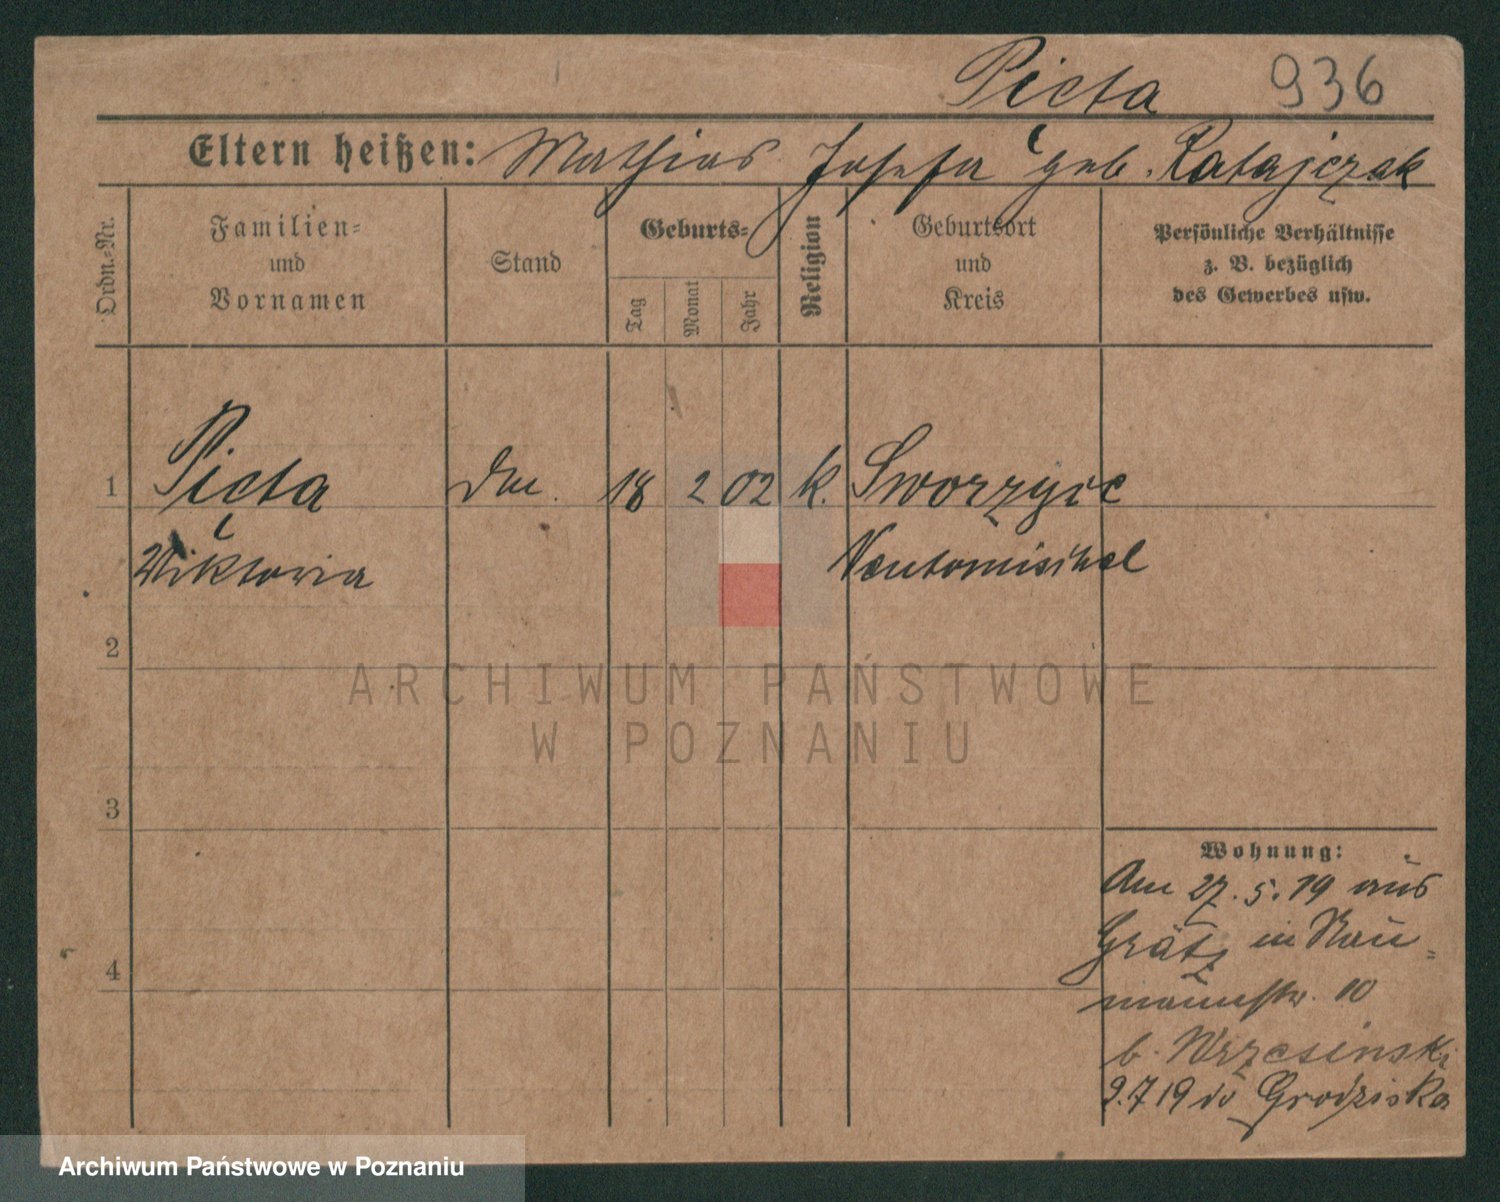 Picta 936
Eltern heißen: Mathias Josefa geb. Ratajczak
Ordn.-Nr.
Familien-
und
Vornamen
Stand
Geburts-
Tag
Monat
Jahr
Religion
Geburtsort
und
Kreis
Persönliche Verhältnisse
z. B. bezüglich
des Gewerbes usw.
1 Picta 18 2 02 k.
Wiktoria
2
ARCHIWUM PAŃSTWOWE
W POZNANIU
3
Wohnung:
Am 27.5.19 aus
Grätz in Nau-
mannstr. 10
b. Wrzesinski
4
2.7 19 do Grodziska
Archiwum Państwowe w Poznaniu